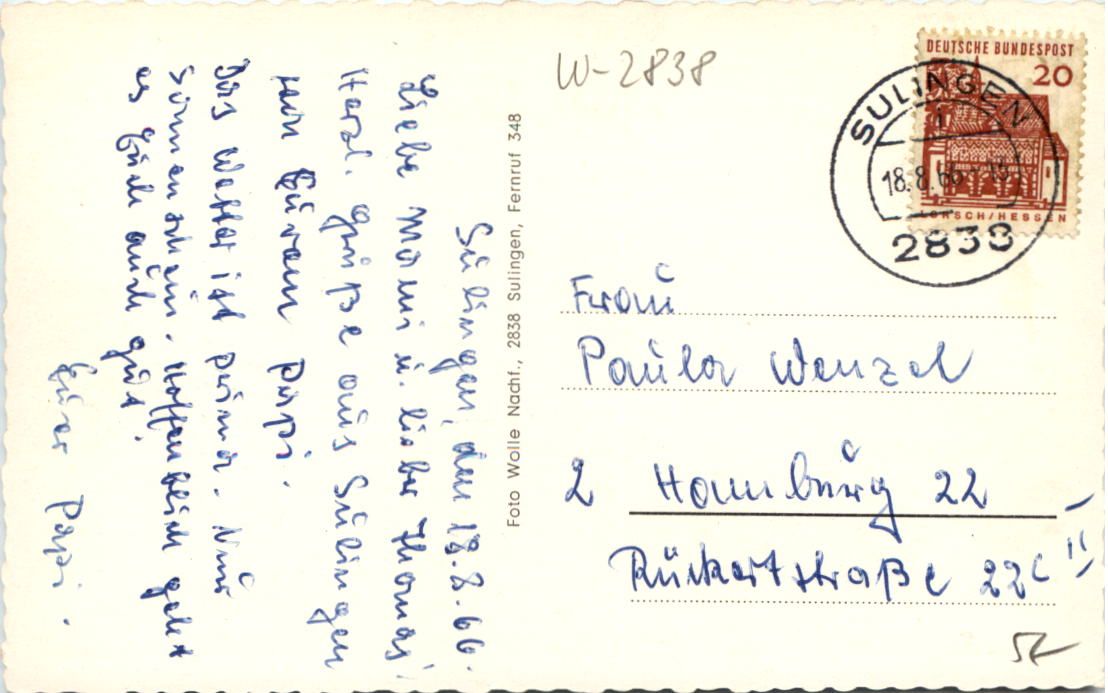 Sulingen, den 18.8.66.
Liebe Mami u. lieber Thomas!
Herzl. Grüße aus Sulingen
von Eurem Papi.
Das Wetter ist prima. Nur
Sonnenschein. Hoffentlich geht
es Euch auch gut.
Euer Papi.
Foto Wolle Nachf., 2838 Sulingen, Fernruf 348
W-2838
DEUTSCHE BUNDESPOST
20
LORSCH/HESSEN
SULINGEN
18.8.66
2838
Frau
Paula Wenzel
2 Hamburg 22
Rückertstraße 22c